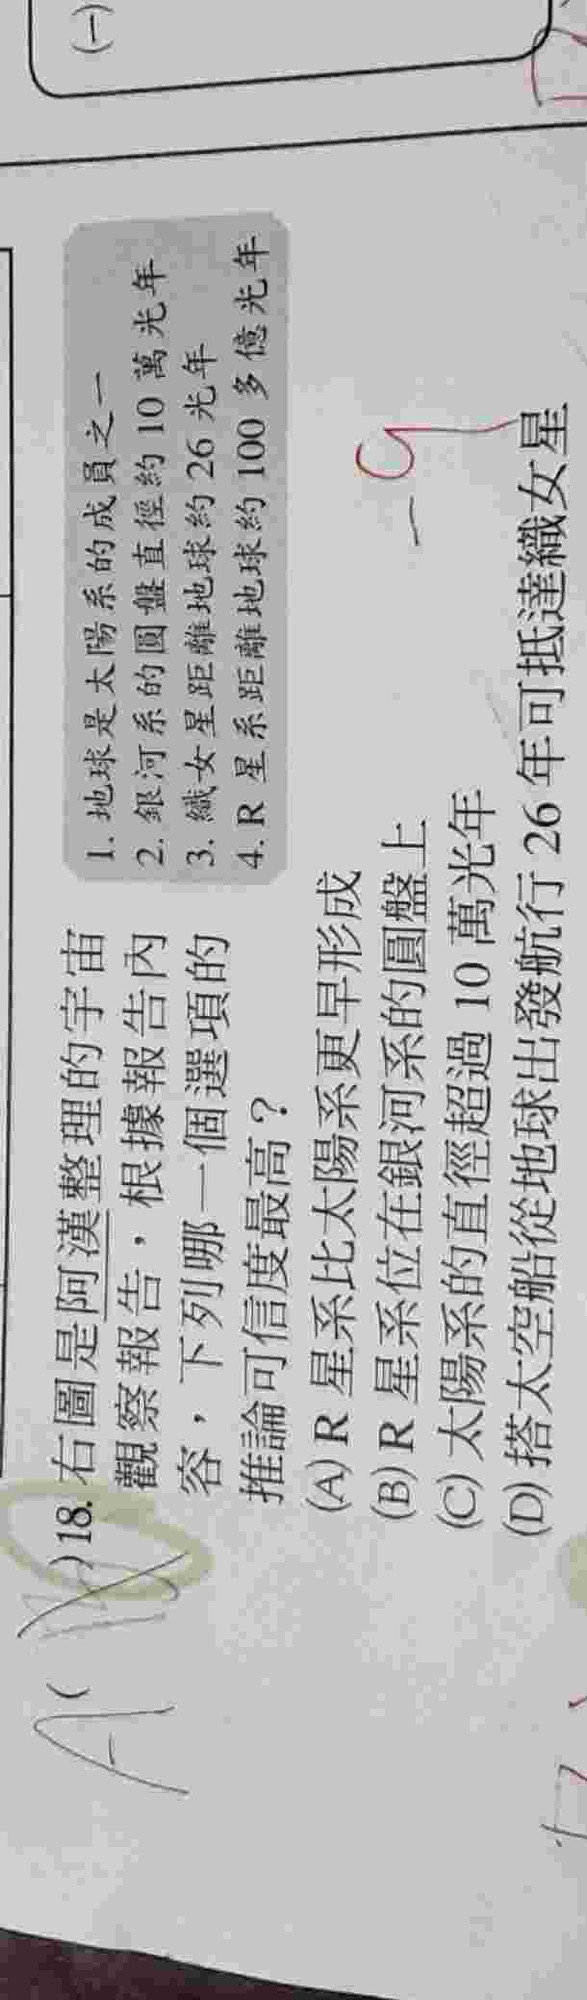 (一)
A(B)18. 右圖是阿漢整理的宇宙
觀察報告，根據報告內
容，下列哪一個選項的
推論可信度最高？
1. 地球是太陽系的成員之一
2. 銀河系的圓盤直徑約 10 萬光年
3. 織女星距離地球約 26 光年
4. R 星系距離地球約 100 多億光年
(A) R 星系比太陽系更早形成
(B) R 星系位在銀河系的圓盤上
(C) 太陽系的直徑超過 10 萬光年
(D) 搭太空船從地球出發航行 26 年可抵達織女星
-9